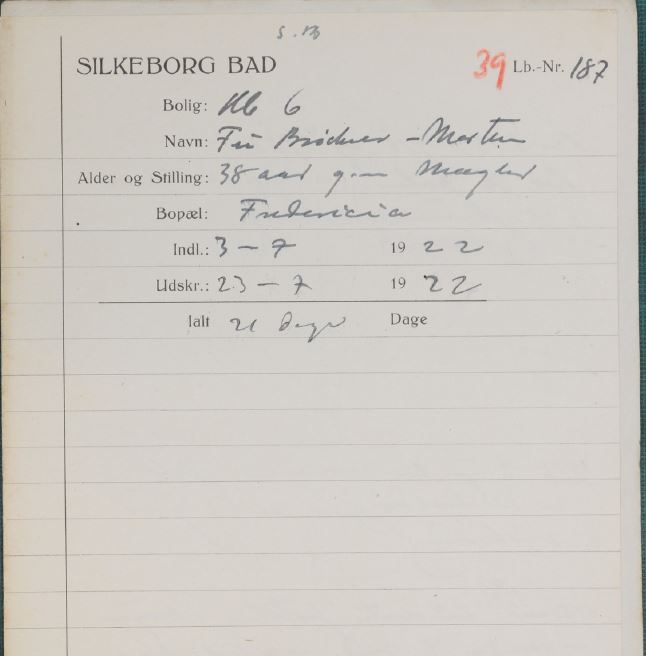 S. B
SILKEBORG BAD 39 Lb.-Nr. 187
Bolig: 6
Navn: Fru - Morten
Alder og Stilling: 38 aar g.m
Bopæl: Fredericia
Indl.: 3 - 7 1922
Udskr.: 23 - 7 1922
Ialt 21 Dage Dage